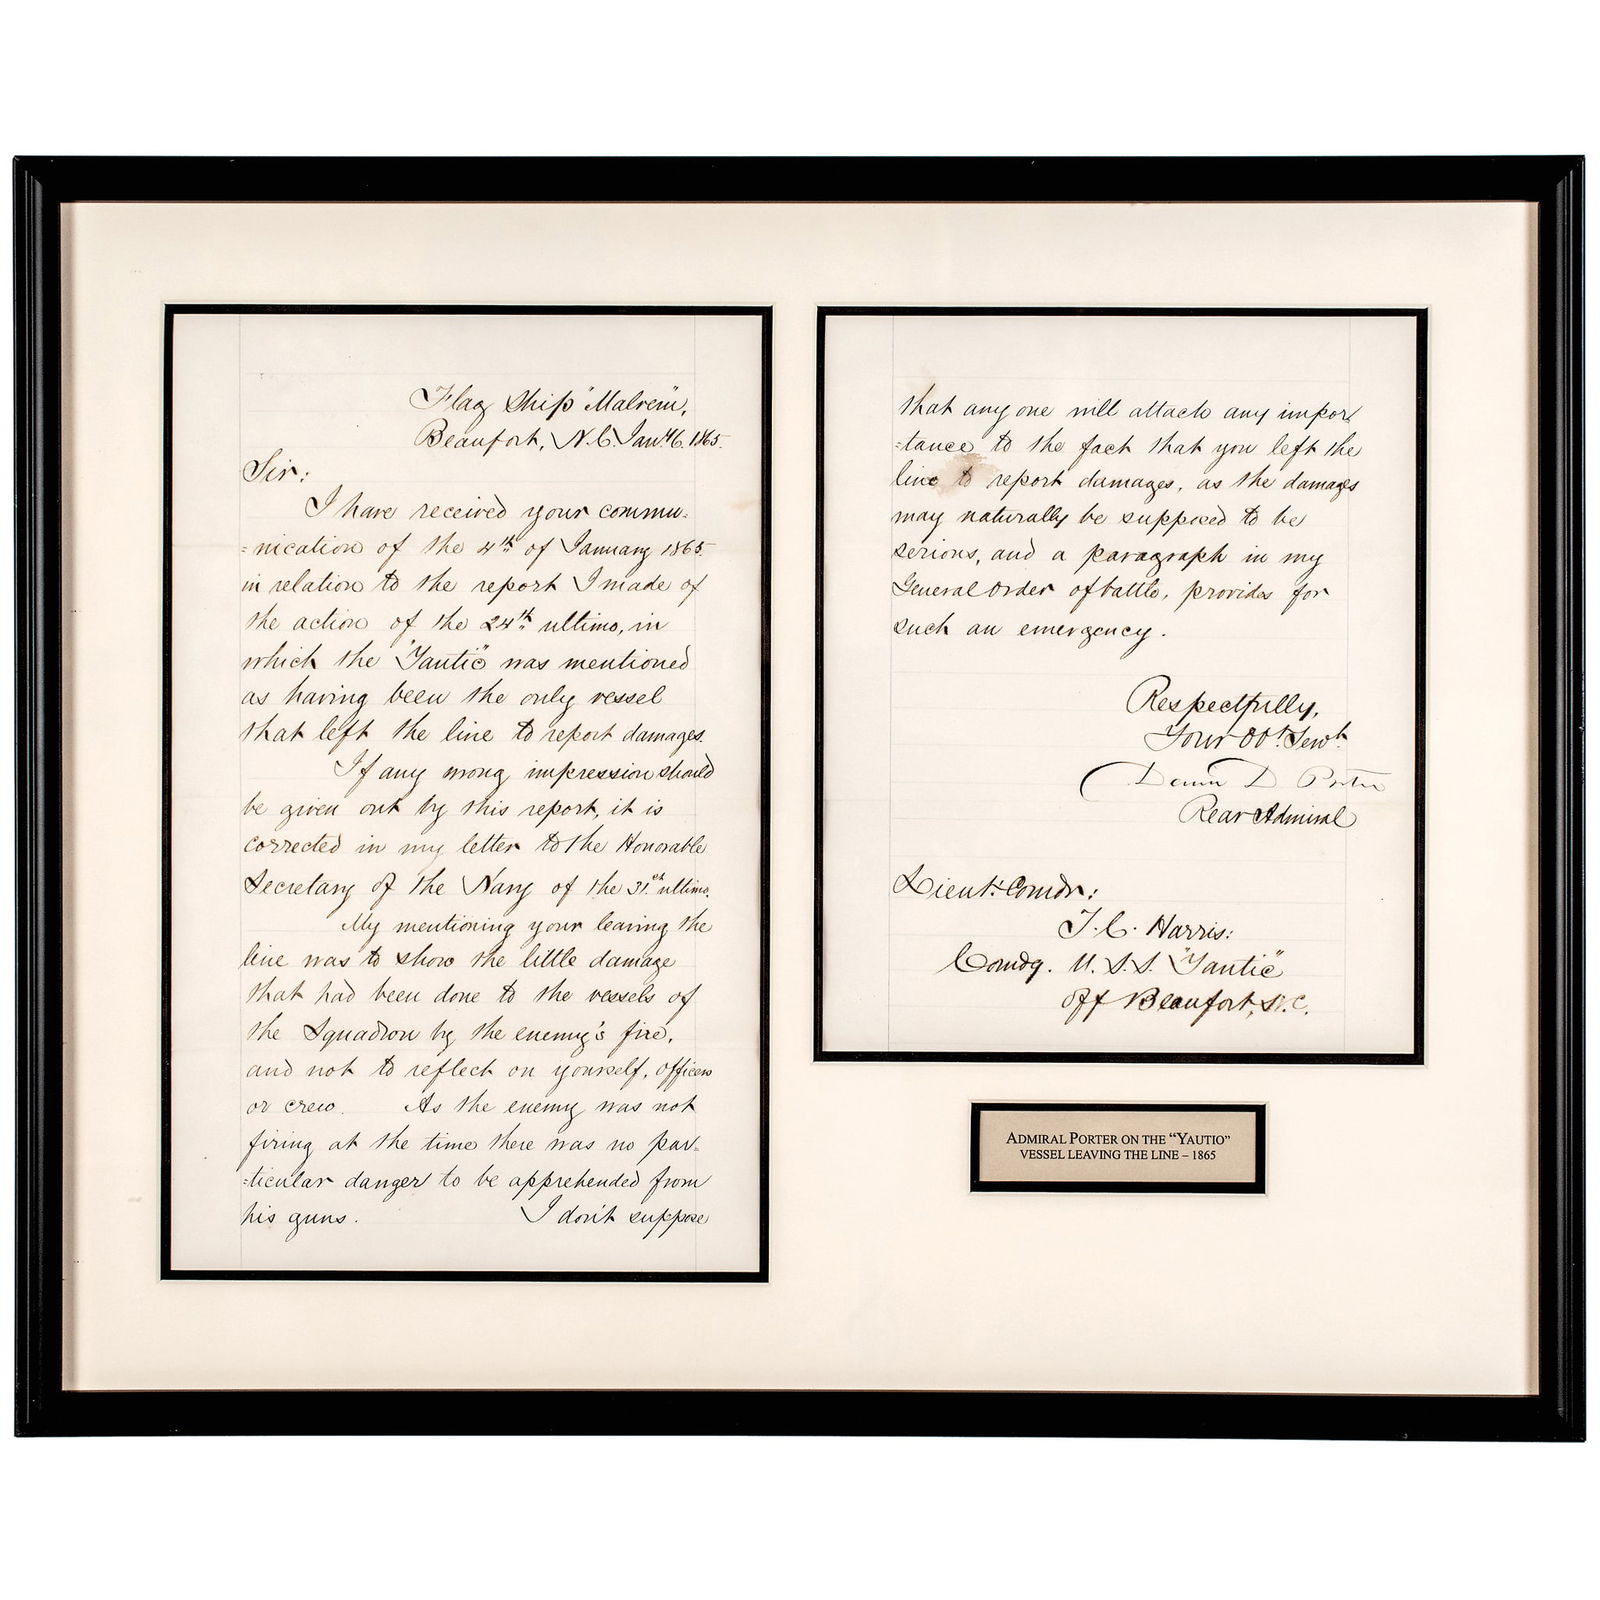 Flag Ship "Malvern",
Beaufort, N.C. Jany. 6. 1865.
Sir:
I have received your commu=
=nication of the 4th of January 1865
in relation to the report I made of
the action of the 24th ultimo, in
which the "Yantic" was mentioned
as having been the only vessel
that left the line to report damages.
If any wrong impression should
be given out by this report, it is
corrected in my letter to the Honorable
Secretary of the Navy of the 31st ultimo.
My mentioning your leaving the
line was to show the little damage
that had been done to the vessels of
the Squadron by the enemy's fire,
and not to reflect on yourself, officers
or crew. As the enemy was not
firing at the time there was no par=
=ticular danger to be apprehended from
his guns. I don't suppose
that any one will attach any impor
=tance to the fact that you left the
line to report damages, as the damages
may naturally be supposed to be
serious, and a paragraph in my
General Order of battle, provides for
such an emergency.
Respectfully,
Your Obt. Servt.
David D. Porter
Rear Admiral
Lieut. Comdr:
T. C. Harris:
Comdg. U.S.S. "Yantic"
off Beaufort, N.C.
ADMIRAL PORTER ON THE "YAUTIO"
VESSEL LEAVING THE LINE – 1865